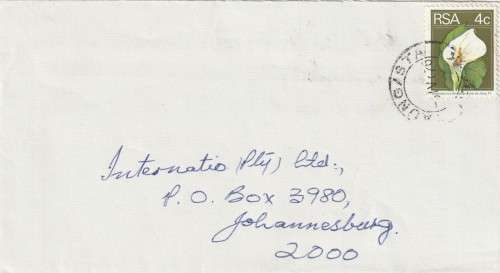 RSA 4c
Internatio (Pty) Ltd.,
P. O. Box 3980,
Johannesburg.
2000